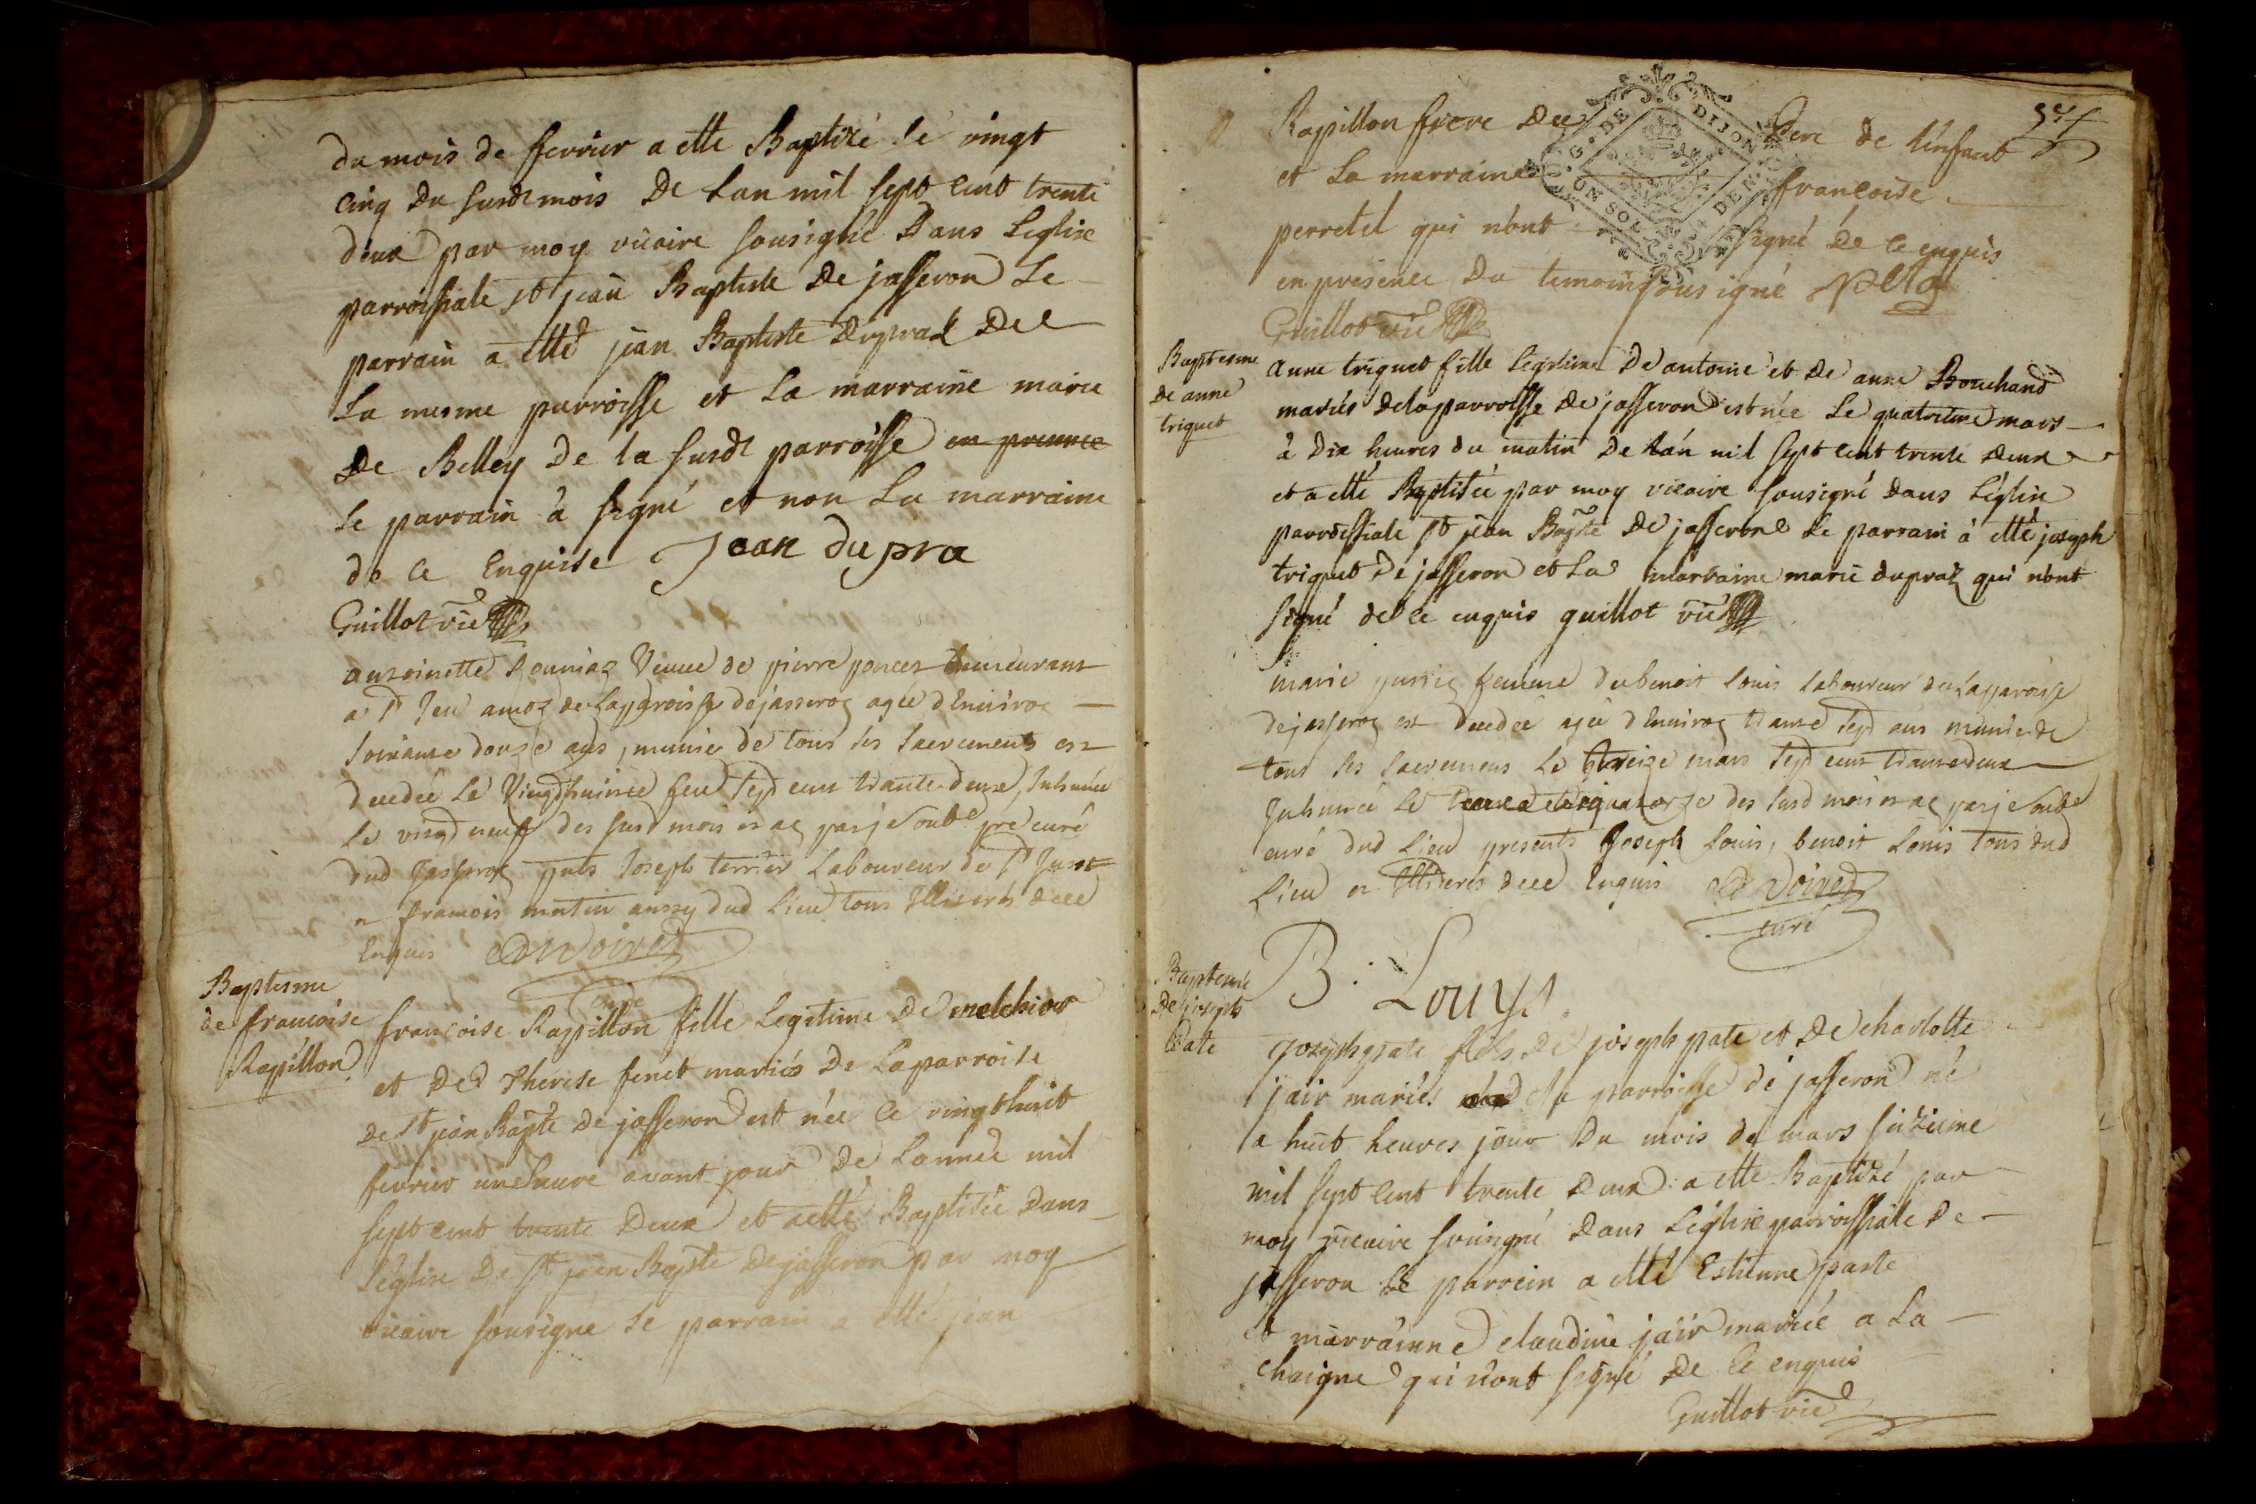 du mois de fevrier a etté Baptizé le vingt
cinq du susdt mois De Lan mil sept cent trente
deux par moy vicaire sousigné Dans Leglise
parroissiale st jean Baptiste De jasseron Le
parrain a etté jean Baptiste Dupraz De
La mesme parroisse et La marraine marie
De Belley De la susdt parroisse
le parrain à signé et non La marraine
de ce Enquise Jean du pra
Guillot vic
antoinette veuve de pierre poncet demeurant
a st de La paroisse de jasseron agée d'Environ
soixante douze ans, munie de tous les sacremens est
decedée Le Vingthuitie sept cent trante deux, Inhumée
Le vingtneuf des susd mois et an par je curé
dud jasseron Joseph terrier Laboureur de st Just
et francois aussy dud Lieu tous Illiterés
Enquis
Baptesme
de francoise
Rapillon
francoise Rapillon fille Legitime De melchior
et De Therese fenet mariés De La parroise
De st jean Bapte De jasseron est née le vingthuit
fevrier une heure avant jour De L'année mil
sept cent trente Deux et a etté Baptisée Dans
L'église De st jean Bapte De jasseron par moy
vicaire sousigné le parrain a etté jean
Rapillon frere De pere de L'enfant
et La marraine francoise
perretel qui n'ont signé De ce enquis
en presence Du temoin sousigné
Guillot vic
Baptesme
De anne
triquet
anne triquet fille legitime De antoine et De anne Bouchand
mariés De la parroisse De jasseron est née Le quatrieme mars
à Dix heures du matin De L'an mil sept cent trente Deux
et a etté Baptisée par moy vicaire sousigné dans L'église
parroissiale st jean Bapte De jasseron Le parrain à etté joseph
triquet De jasseron et La marraine marie dupraz qui n'ont
signé de ce enquis guillot vic
marie femme de benoit Louis Laboureur de La paroisse
de jasseron est decedée agée d'Environ trante sept ans munie de
tous les sacremens Le treize mars sept cent trante deux
Inhumée Le quatorze des susd mois et an par je
curé dud Lieu presents Joseph Louis, benoit Louis tous dud
Lieu et Illiterés Enquis
curé
B. Louys
Baptesme
De joseph
Pate
joseph pate fils De joseph pate et De charlotte
jair mariés De La parroisse de jasseron né
a huit heures jour Du mois de mars seizieme
mil sept cent trente Deux a etté Baptizé par
moy vicaire sousigné Dans L'église parroissiale De
jasseron Le parrein a etté Estienne paste
et marrainne claudine jair mariée a La
chaigne qui n'ont signé De ce enquis
Guillot vic